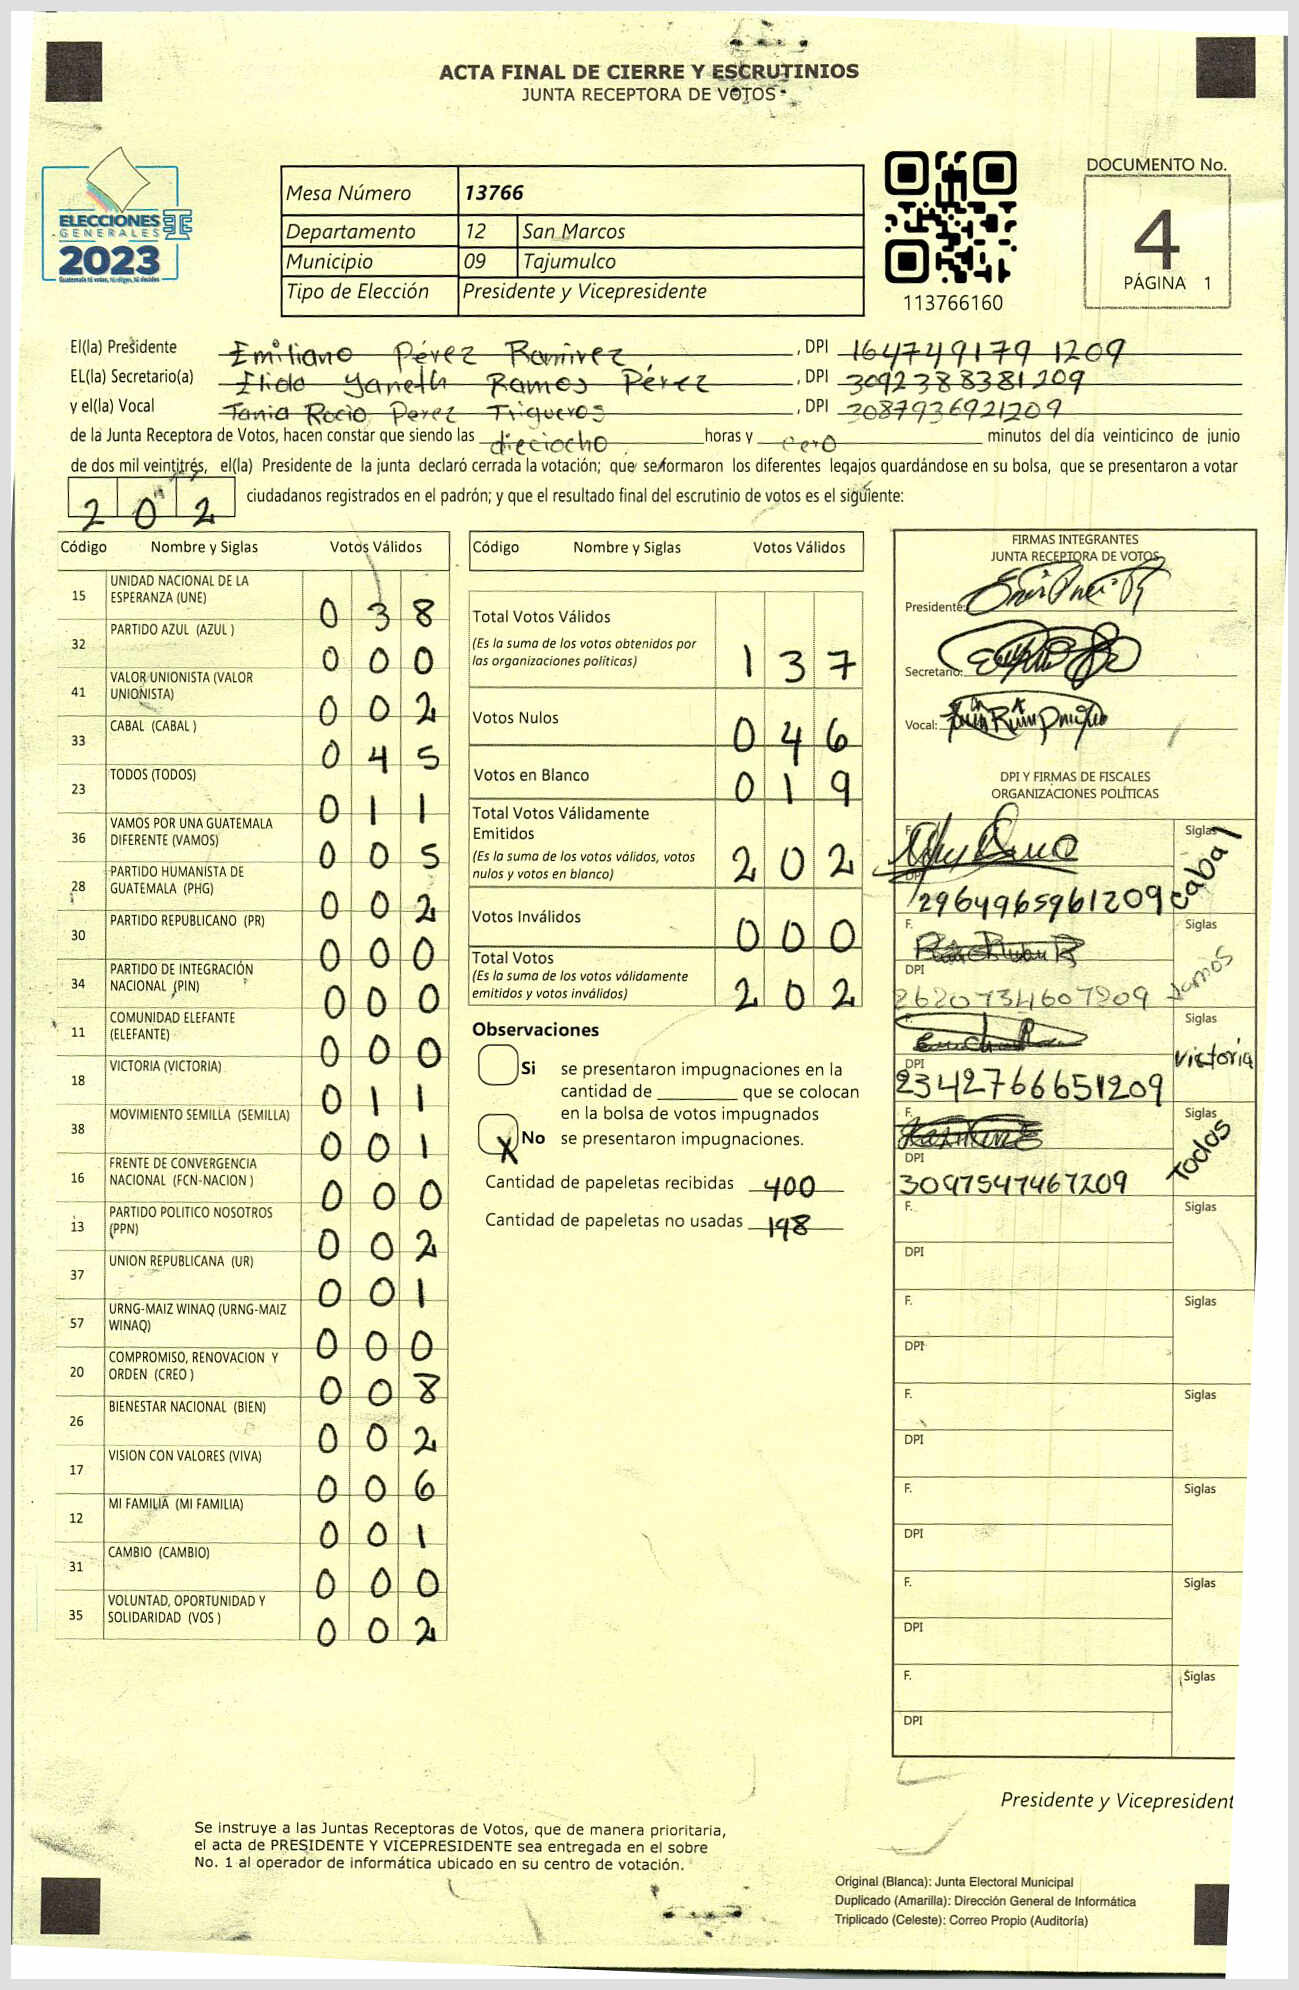 ACTA FINAL DE CIERRE Y ESCRUTINIOS
JUNTA RECEPTORA DE VOTOS
ELECCIONES
GENERALES
2023
Mesa Número 13766
Departamento 12 San Marcos
Municipio 09 Tajumulco
Tipo de Elección Presidente y Vicepresidente
113766160
DOCUMENTO No.
4
PÁGINA 1
El(la) Presidente Emiliano Pérez Ramirez, DPI 1647491791209
EL(la) Secretario(a) Elida Yaneth Ramos Pérez, DPI 3092388381209
y el(la) Vocal Tania Rocio Perez Trigueros, DPI 3087936921209
de la Junta Receptora de Votos, hacen constar que siendo las dieciocho horas y cero minutos del día veinticinco de junio
de dos mil veintitrés, el(la) Presidente de la junta declaró cerrada la votación; que se formaron los diferentes legajos guardándose en su bolsa, que se presentaron a votar
202 ciudadanos registrados en el padrón; y que el resultado final del escrutinio de votos es el siguiente:
Código Nombre y Siglas Votos Válidos
15 UNIDAD NACIONAL DE LA ESPERANZA (UNE) 0 3 8
32 PARTIDO AZUL (AZUL ) 0 0 0
41 VALOR UNIONISTA (VALOR UNIONISTA) 0 0 2
33 CABAL (CABAL ) 0 4 5
23 TODOS (TODOS) 0 1 1
36 VAMOS POR UNA GUATEMALA DIFERENTE (VAMOS) 0 0 5
28 PARTIDO HUMANISTA DE GUATEMALA (PHG) 0 0 2
30 PARTIDO REPUBLICANO (PR) 0 0 0
34 PARTIDO DE INTEGRACIÓN NACIONAL (PIN) 0 0 0
11 COMUNIDAD ELEFANTE (ELEFANTE) 0 0 0
18 VICTORIA (VICTORIA) 0 1 1
38 MOVIMIENTO SEMILLA (SEMILLA) 0 0 1
16 FRENTE DE CONVERGENCIA NACIONAL (FCN-NACION ) 0 0 0
13 PARTIDO POLITICO NOSOTROS (PPN) 0 0 2
37 UNION REPUBLICANA (UR) 0 0 1
57 URNG-MAIZ WINAQ (URNG-MAIZ WINAQ) 0 0 0
20 COMPROMISO, RENOVACION Y ORDEN (CREO ) 0 0 8
26 BIENESTAR NACIONAL (BIEN) 0 0 2
17 VISION CON VALORES (VIVA) 0 0 6
12 MI FAMILIA (MI FAMILIA) 0 0 1
31 CAMBIO (CAMBIO) 0 0 0
35 VOLUNTAD, OPORTUNIDAD Y SOLIDARIDAD (VOS ) 0 0 2
Código Nombre y Siglas Votos Válidos
Total Votos Válidos
(Es la suma de los votos obtenidos por
las organizaciones políticas) 1 3 7
Votos Nulos 0 4 6
Votos en Blanco 0 1 9
Total Votos Válidamente
Emitidos
(Es la suma de los votos válidos, votos
nulos y votos en blanco) 2 0 2
Votos Inválidos 0 0 0
Total Votos
(Es la suma de los votos válidamente
emitidos y votos inválidos) 2 0 2
Observaciones
Si se presentaron impugnaciones en la
cantidad de ________ que se colocan
en la bolsa de votos impugnados
X No se presentaron impugnaciones.
Cantidad de papeletas recibidas 400
Cantidad de papeletas no usadas 198
FIRMAS INTEGRANTES
JUNTA RECEPTORA DE VOTOS
Presidente:
Secretario:
Vocal:
DPI Y FIRMAS DE FISCALES
ORGANIZACIONES POLÍTICAS
F. Siglas cabal
DPI 2964965961209
F. Siglas
DPI 2620734607209
F. Siglas Victoria
DPI 2342766651209
F. Siglas Todos
DPI 3097547467209
F. Siglas
DPI
F. Siglas
DPI
F. Siglas
DPI
F. Siglas
DPI
F. Siglas
DPI
F. Siglas
DPI
Presidente y Vicepresident
Se instruye a las Juntas Receptoras de Votos, que de manera prioritaria,
el acta de PRESIDENTE Y VICEPRESIDENTE sea entregada en el sobre
No. 1 al operador de informática ubicado en su centro de votación.
Original (Blanca): Junta Electoral Municipal
Duplicado (Amarilla): Dirección General de Informática
Triplicado (Celeste): Correo Propio (Auditoría)